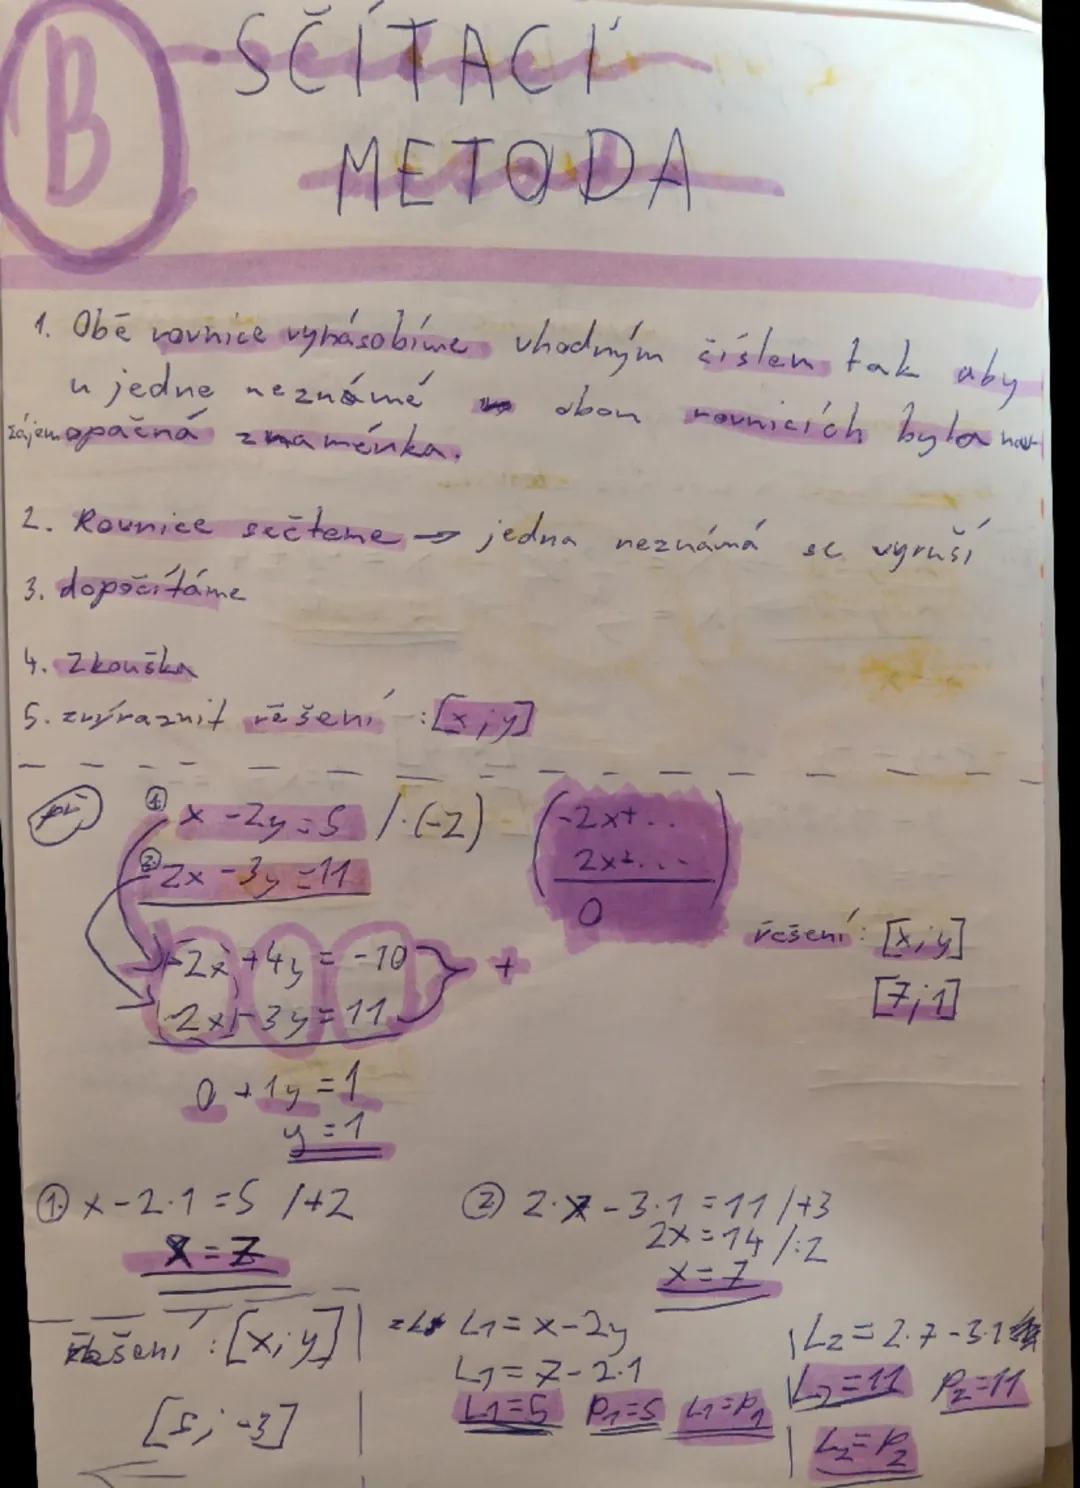 B SČÍTACÍ
METODA
1. Obě rovnice vynásobíme vhodným číslem tak aby
u jedne neznámé obou rovnicích byla nav
zájem opačná znaménka.
2. Rovnice sečteme → jedna neznámá se vyruší
3. dopočítáme
4. Zkouška
5. zvýraznit řešení : [x;y]
př
① x - 2y = 5 /·(-2)
② 2x - 3y = 11
(-2x+..
2x+...)
0
-2x + 4y = -10
2x - 3y = 11
+
řešení: [x;y]
[7;1]
0 + 1y = 1
y = 1
① x - 2·1 = 5 /+2
x = 7
② 2·x - 3·1 = 11 /+3
2x = 14 /:2
x = 7
řešení : [x;y]
[5;-3]
L1 = x - 2y
L1 = 7 - 2·1
L1 = 5 P1 = 5 L1 = P1
L2 = 2·7 - 3·1
L2 = 11 P2 = 11
L2 = P2